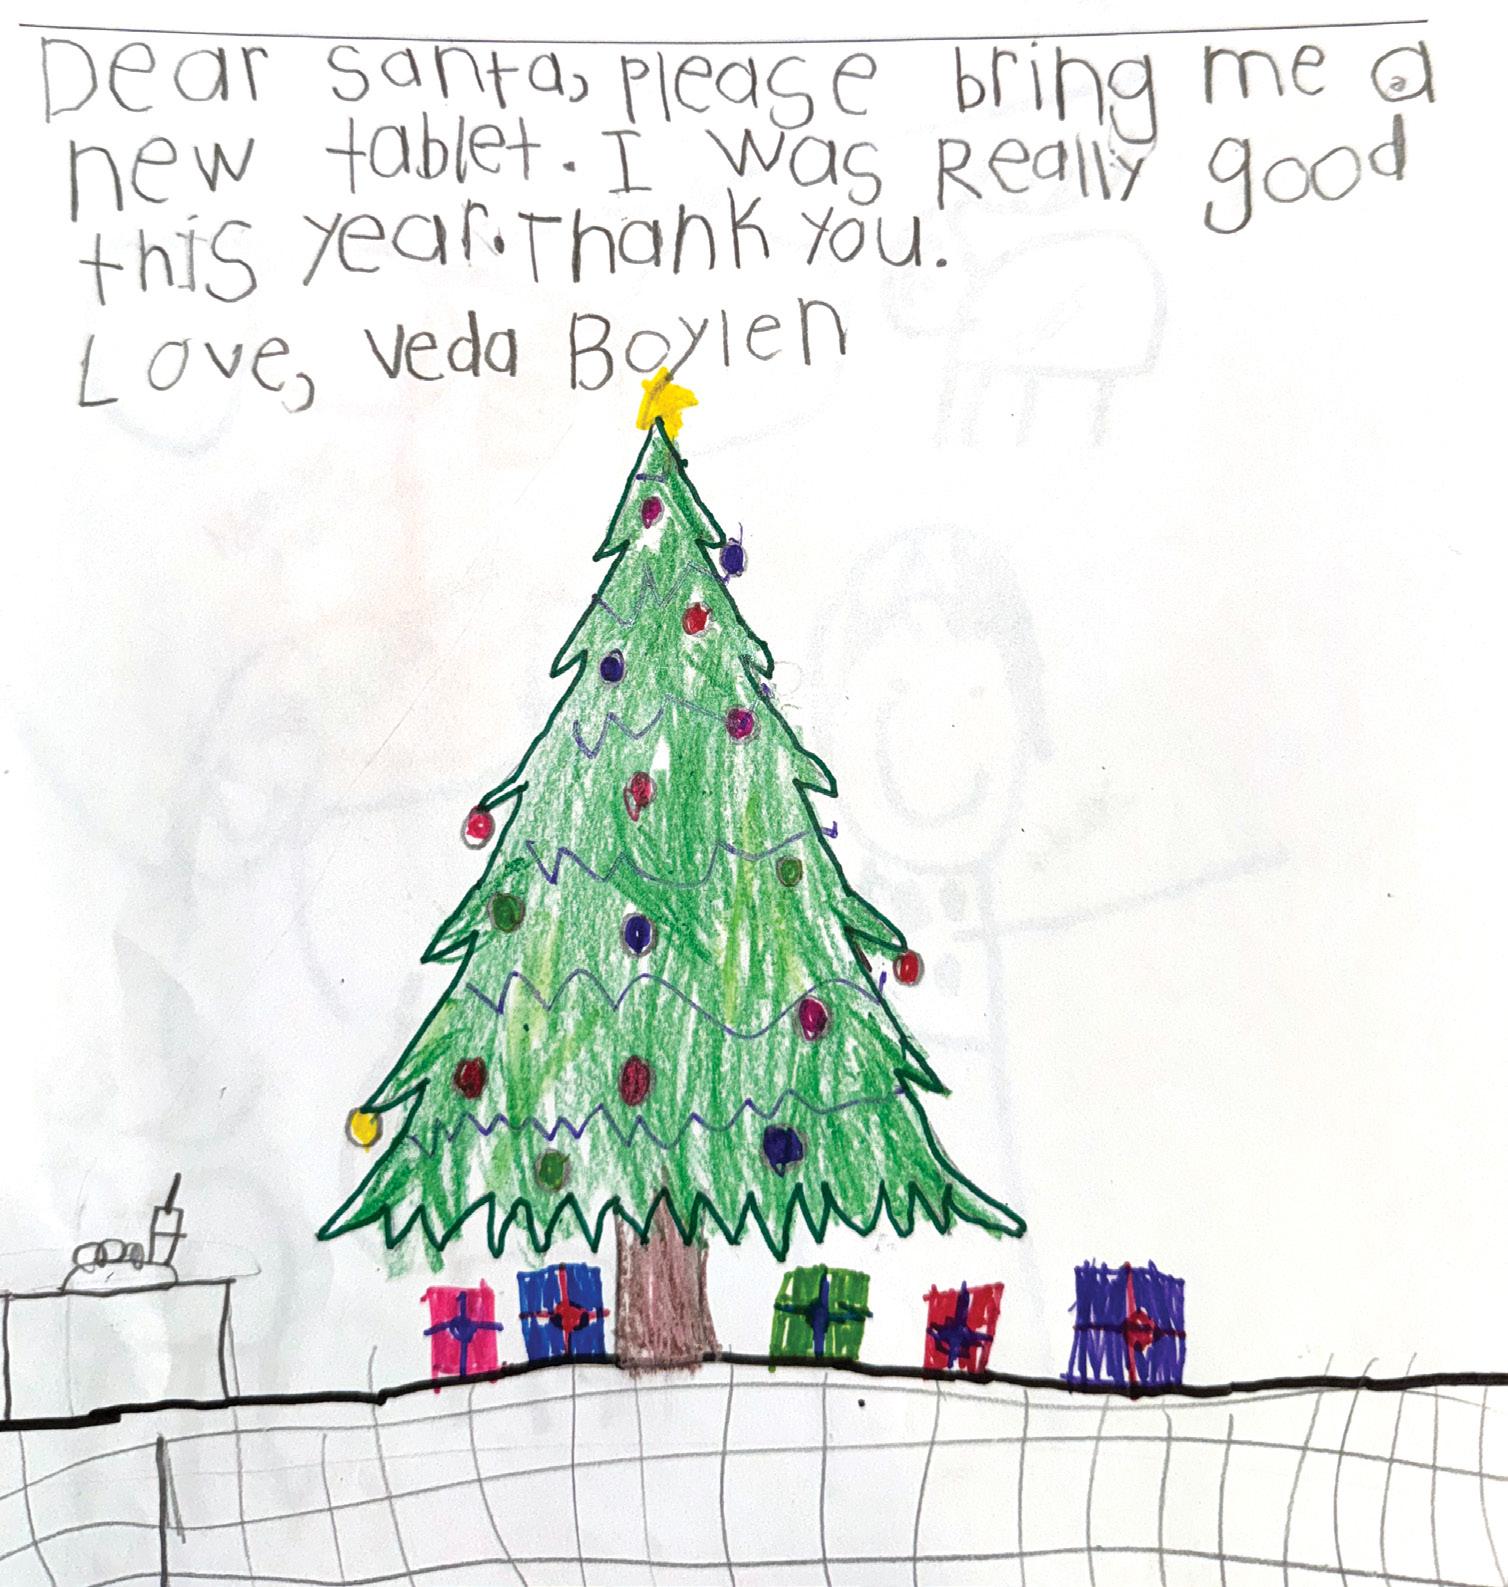 Dear Santa, Please bring me a
new tablet. I was Really good
this year. Thank you.
Love, Veda Boylen